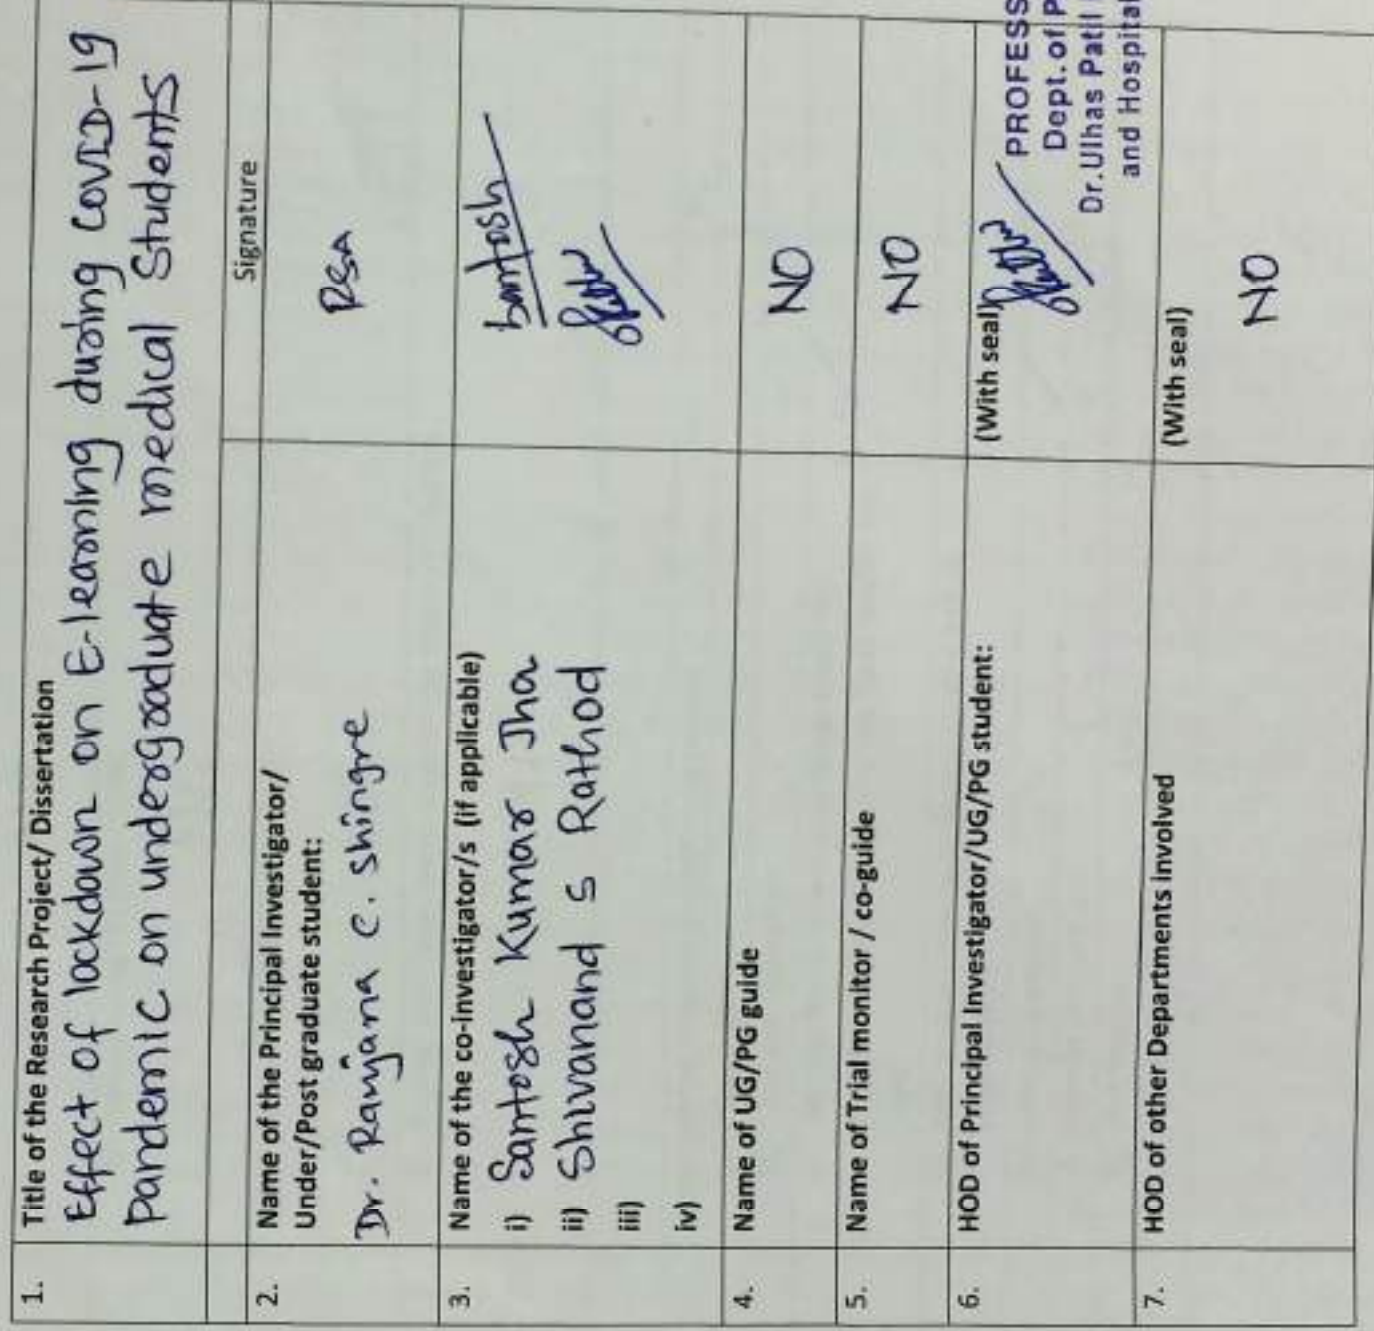 1. Title of the Research Project/ Dissertation
Effect of lockdown on E-learning during COVID-19
Pandemic on undergraduate medical Students
Signature
2. Name of the Principal Investigator/
Under/Post graduate student:
Dr. Ranjana C. Shingre
3. Name of the co-investigator/s (if applicable)
i) Santosh Kumar Jha Santosh
ii) Shivanand S Rathod
iii)
iv)
4. Name of UG/PG guide NO
5. Name of Trial monitor / co-guide NO
6. HOD of Principal Investigator/UG/PG student: (With seal)
PROFESS
Dept. of P
Dr. Ulhas Patil
and Hospital
7. HOD of other Departments involved (With seal)
NO